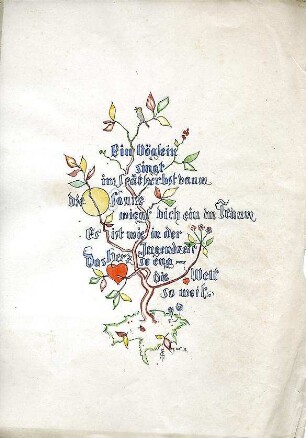 Ein Vöglein
singt
im Spätherbstbaum
die Sonne
wiegt dich ein in Traum
Es ist wie in der
Jugendzeit
Das Herz so eng —
die Welt
so weit.